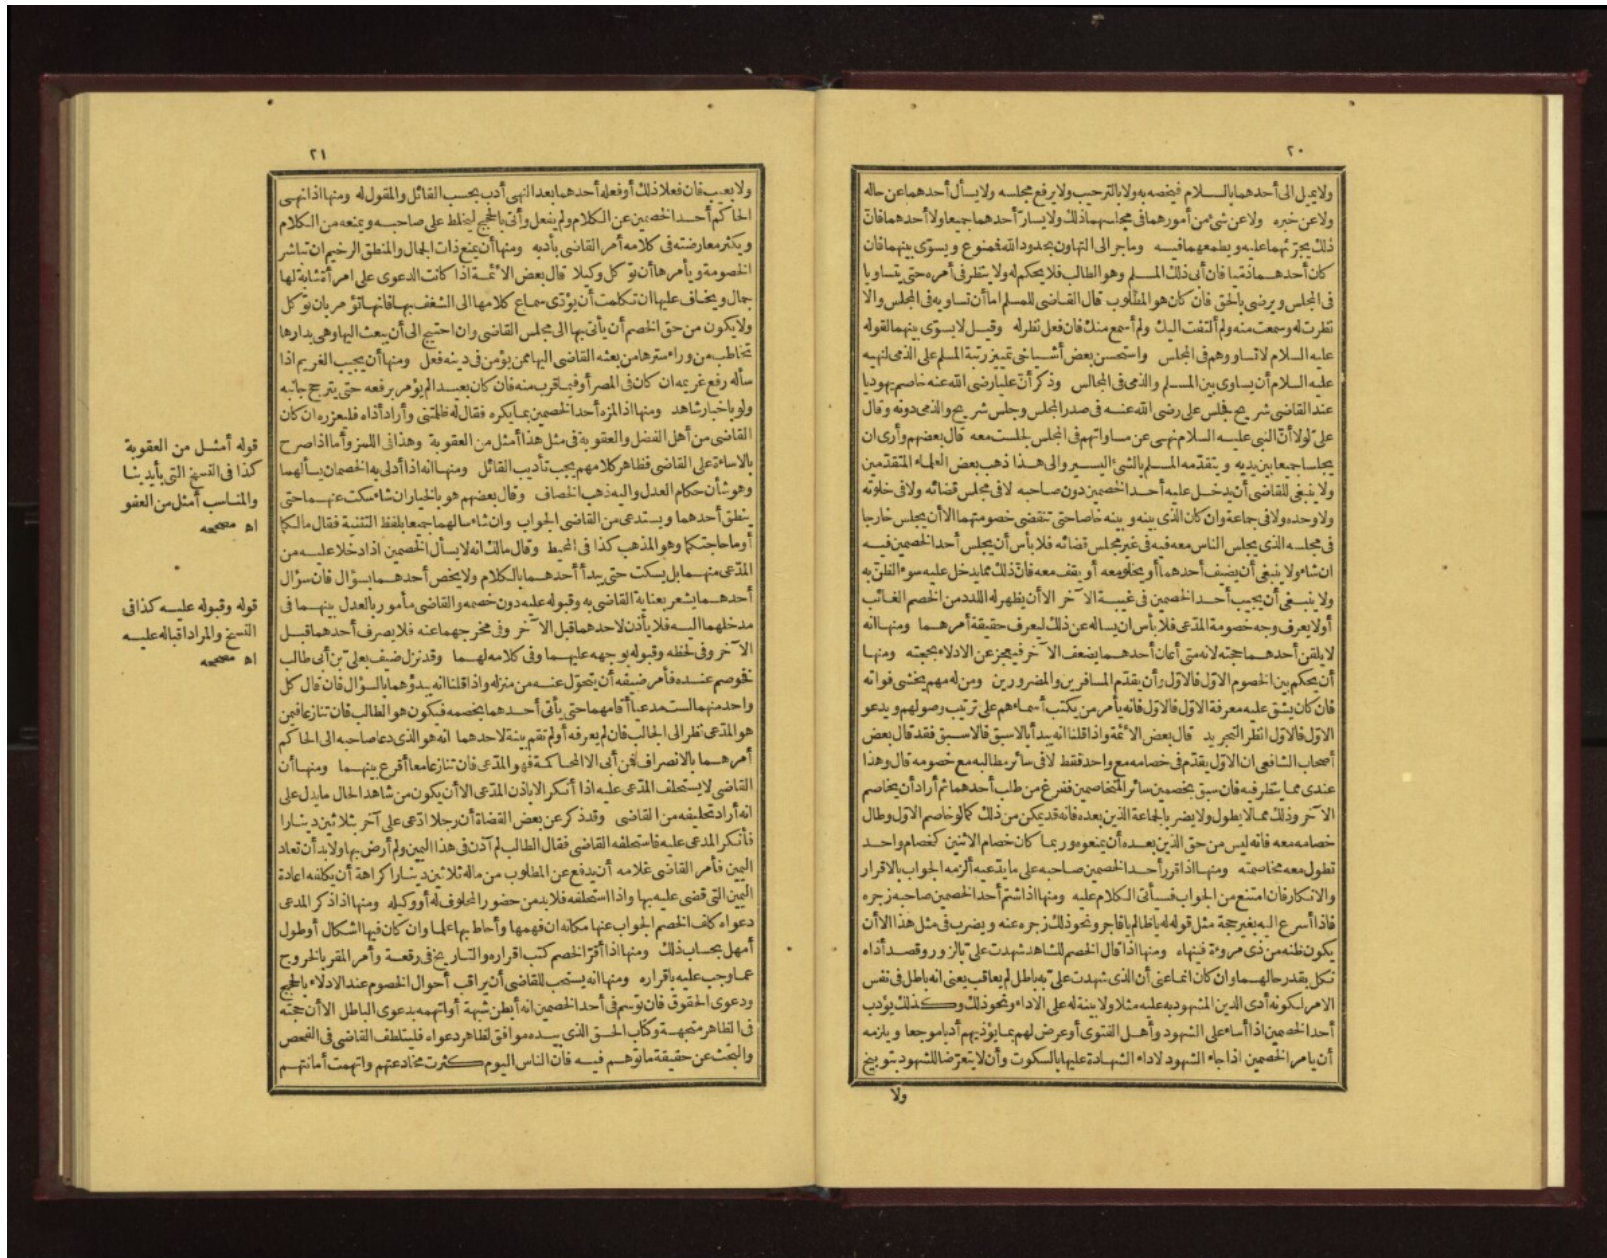 ٢٠
ولا يميل الى أحدهما بالسلام فيخصه به ولا بالترحيب ولا يرفع مجلسه ولا يسأل أحدهما عن حاله
ولا عن خبره ولا عن شئ من أمورهما فى مجلسهما ذلك ولا يسارّ أحدهما جميعا ولا أحدهما فانّ
ذلك يجرّئهما عليه ويطمعهما فيه وما جر الى التهاون بحدود الله فممنوع ويسوّى بينهما فان
كان أحدهما ذميا فان أبى ذلك المسلم وهو الطالب فلا يحكم له ولا ينظر فى أمره حتى يتساويا
فى المجلس ويرضى بالحق فان كان هو المطلوب قال القاضى للمسلم اما أن تساويه فى المجلس والا
نظرت له وسمعت منه ولم ألتفت اليك ولم أسمع منك فان فعل نظر له وقيل لا يسوّى بينهما لقوله
عليه السلام لا تساووهم فى المجلس واستحسن بعض أشياخى تمييز رتبة المسلم على الذمى لنهيه
عليه السلام أن يساوى بين المسلم والذمى فى المجالس وذكر أنّ عليا رضى الله عنه خاصم يهوديا
عند القاضى شريح فجلس على رضى الله عنه فى صدر المجلس وجلس شريح والذمى دونه وقال
علىّ لولا أنّ النبى عليه السلام نهى عن مساواتهم فى المجلس لجلست معه قال بعضهم وأرى ان
يجلسا جميعا بين يديه ويتقدّمه المسلم بالشئ اليسير والى هذا ذهب بعض العلماء المتقدّمين
ولا ينبغى للقاضى أن يدخل عليه أحد الخصمين دون صاحبه لا فى مجلس قضائه ولا فى خلوته
ولا وحده ولا فى جماعة وان كان الذى بينه وبينه خاصا حتى تنقضى خصومتهما الا أن يجلس خارجا
فى مجلسه الذى يجلس الناس معه فيه فى غير مجلس قضائه فلا بأس أن يجلس أحد الخصمين فيه
ان شاء ولا ينبغى أن يضيف أحدهما أو يخلو معه أو يقف معه فانّ ذلك مما يدخل عليه سوء الظنّ به
ولا ينبغى أن يجيب أحد الخصمين فى غيبة الآخر الا أن يظهر له اللدد من الخصم الغائب
أو لا يعرف وجه خصومة المدّعى فلا بأس ان يساله عن ذلك ليعرف حقيقة أمرهما ومنها انه
لا يلقن أحدهما حجته لانه متى أعان أحدهما يضعف الآخر فيعجز عن الادلاء بحجته ومنها
أن يحكم بين الخصوم الاوّل فالاوّل وأن يقدّم المسافرين والمضرورين ومن له مهم يخشى فواته
فان كان يشق عليه معرفة الاوّل فالاوّل فانه يأمر من يكتب أسماءهم على ترتيب وصولهم ويدعو
الاوّل فالاوّل انظر التجريد قال بعض الائمة واذا قلنا انه يبدأ بالاسبق فالاسبق فقد قال بعض
أصحاب الشافعى ان الاوّل يقدّم فى خصامه مع واحد فقط لا فى سائر مطالبه مع خصومه قال وهذا
عندى مما ينظر فيه فان سبق بخصمين سائر المتخاصمين ففرغ من طلب أحدهما ثم أراد أن يخاصم
الآخر وذلك مما لا يطول ولا يضر بالجماعة الذين بعده فانه قد يمكن من ذلك كما لو خاصم الاوّل وطال
خصامه معه فانه ليس من حق الذين بعده أن يمنعوه وربما كان خصام الاثنين كخصام واحد
تطول معه مخاصمته ومنها اذا قرر أحد الخصمين صاحبه على ما يدّعيه ألزمه الجواب بالاقرار
والانكار فان امتنع من الجواب فسيأتى الكلام عليه ومنها اذا شتم أحد الخصمين صاحبه زجره
فاذا أسرع اليه بغير حجة مثل قوله له يا ظالم يا فاجر ونحو ذلك زجره عنه ويضرب فى مثل هذا الا أن
يكون ظنه من ذى مروءة فينهاه ومنها اذا قال الخصم للشاهد شهدت علىّ بالزور وقصد أذاه
نكل بقدر حالهما وان كان انما عنى أن الذى شهدت علىّ به باطل لم يعاقب يعنى انه باطل فى نفس
الامر لكونه أدى الدين المشهود به عليه مثلا ولا بينة له على الاداء ونحو ذلك وكذلك يؤدب
أحد الخصمين اذا أساء على الشهود وأهل الفتوى أو عرض لهم بما يؤذيهم أدبا موجعا ويلزمه
أن يامر الخصمين اذا جاء الشهود لاداء الشهادة عليها بالسكوت وأن لا يتعرّضا للشهود بتوبيخ
ولا
٢١
ولا بعيب فان فعلا ذلك أو فعله أحدهما بعد النهى أدب بحسب القائل والمقول له ومنها اذا نهى
الحاكم أحد الخصمين عن الكلام ولم يفعل وأتى بالحجج ليخلط على صاحبه ويمنعه من الكلام
ويكثر معارضته فى كلامه أمر القاضى بأدبه ومنها أن يمنع ذات الجمال والمنطق الرخيم ان تباشر
الخصومة ويأمرها أن توكل وكيلا قال بعض الائمة اذا كانت الدعوى على امرأة شابة لها
جمال ويخاف عليها ان تكلمت أن يؤدّى سماع كلامها الى الشغف بها فانها تؤمر بان توكل
ولا يكون من حق الخصم أن يأتى بها الى مجلس القاضى وان احتيج الى أن يبعث اليها وهى بدارها
تخاطب من وراء سترها من بعثه القاضى اليها ممن يؤمن فى دينه فعل ومنها أن يجيب الغريم اذا
سأله رفع غريمه ان كان فى المصر أو فيما قرب منه فان كان بعيدا لم يؤمر برفعه حتى يترجح جانبه
ولو باخبار شاهد ومنها اذا لمزه أحد الخصمين بما يكره فقال له ظلمتنى وأراد أذاه فليعزره ان كان
القاضى من أهل الفضل والعقوبة فى مثل هذا أمثل من العقوبة وهذا فى اللمز وأما اذا صرح
بالاساءة على القاضى فظاهر كلامهم يجب تأديب القائل ومنها انه اذا أدلى به الخصمان يسألهما
وهو شأن حكام العدل واليه ذهب الخصاف وقال بعضهم هو بالخيار ان شاء سكت عنهما حتى
ينطق أحدهما ويستدعى من القاضى الجواب وان شاء سالهما جميعا بلفظ التثنية فقال مالكما
أو ما حاجتكما وهو المذهب كذا فى المحيط وقال مالك انه لا يسأل الخصمين اذا دخلا عليه من
المدّعى منهما بل يسكت حتى يبدأ أحدهما بالكلام ولا يخص أحدهما بسؤال فان سؤال
أحدهما يشعر بعناية القاضى به وقبوله عليه دون خصمه والقاضى مأمور بالعدل بينهما فى
مدخلهما اليه فلا يأذن لاحدهما قبل الآخر وفى مخرجهما عنه فلا يصرف أحدهما قبل
الآخر وفى لحظه وقبوله بوجهه عليهما وفى كلامه لهما وقد نزل ضيف بعلىّ بن أبى طالب
فخوصم عنده فأمر ضيفه أن يتحوّل عنه من منزله واذا قلنا انه يبدؤهما بالسؤال فان قال كل
واحد منهما لست مدعيا أقامهما حتى يأتى أحدهما بخصمه فيكون هو الطالب فان تنازعا فيمن
هو المدّعى نظر الى الجالب فان لم يعرفه أو لم تقم بينة لاحدهما انه هو الذى دعا صاحبه الى الحاكم
أمرهما بالانصراف فمن أبى الا المحاكمة فهو المدّعى فان تنازعا معا أقرع بينهما ومنها أن
القاضى لا يستحلف المدّعى عليه اذا أنكر الا باذن المدّعى الا أن يكون من شاهد الحال ما يدل على
انه أراد تحليفه من القاضى وقد ذكر عن بعض القضاة أن رجلا ادّعى على آخر بثلاثين دينارا
فأنكر المدعى عليه فاستحلفه القاضى فقال الطالب لم آذن فى هذا اليمين ولم أرض بها ولا بد أن تعاد
اليمين فأمر القاضى غلامه أن يدفع عن المطلوب من ماله ثلاثين دينارا كراهة أن يكلفه اعادة
اليمين التى قضى عليه بها واذا استحلفه فلا بد من حضور المحلوف له أو وكيله ومنها اذا ذكر المدعى
دعواه كلف الخصم الجواب عنها مكانه ان فهمها وأحاط بها علما وان كان فيها اشكال أو طول
أمهل بحساب ذلك ومنها اذا أقرّ الخصم كتب اقراره والتاريخ فى رقعة وأمر المقر بالخروج
عما وجب عليه باقراره ومنها انه يستحب للقاضى أن يراقب أحوال الخصوم عند الادلاء بالحجج
ودعوى الحقوق فان توسم فى أحد الخصمين انه أبطن شبهة أو اتهمه بدعوى الباطل الا أن حجته
فى الظاهر متجهة وكتاب الحق الذى بيده موافق لظاهر دعواه فليتلطف القاضى فى الفحص
والبحث عن حقيقة ما توهم فيه فان الناس اليوم كثرت مخادعتهم واتهمت أمانتهم
قوله أمثل من العقوبة
كذا فى النسخ التى بأيدينا
والمناسب أمثل من العفو
اه مصححه
قوله وقبوله عليه كذا فى
النسخ والمراد اقباله عليه
اه مصححه